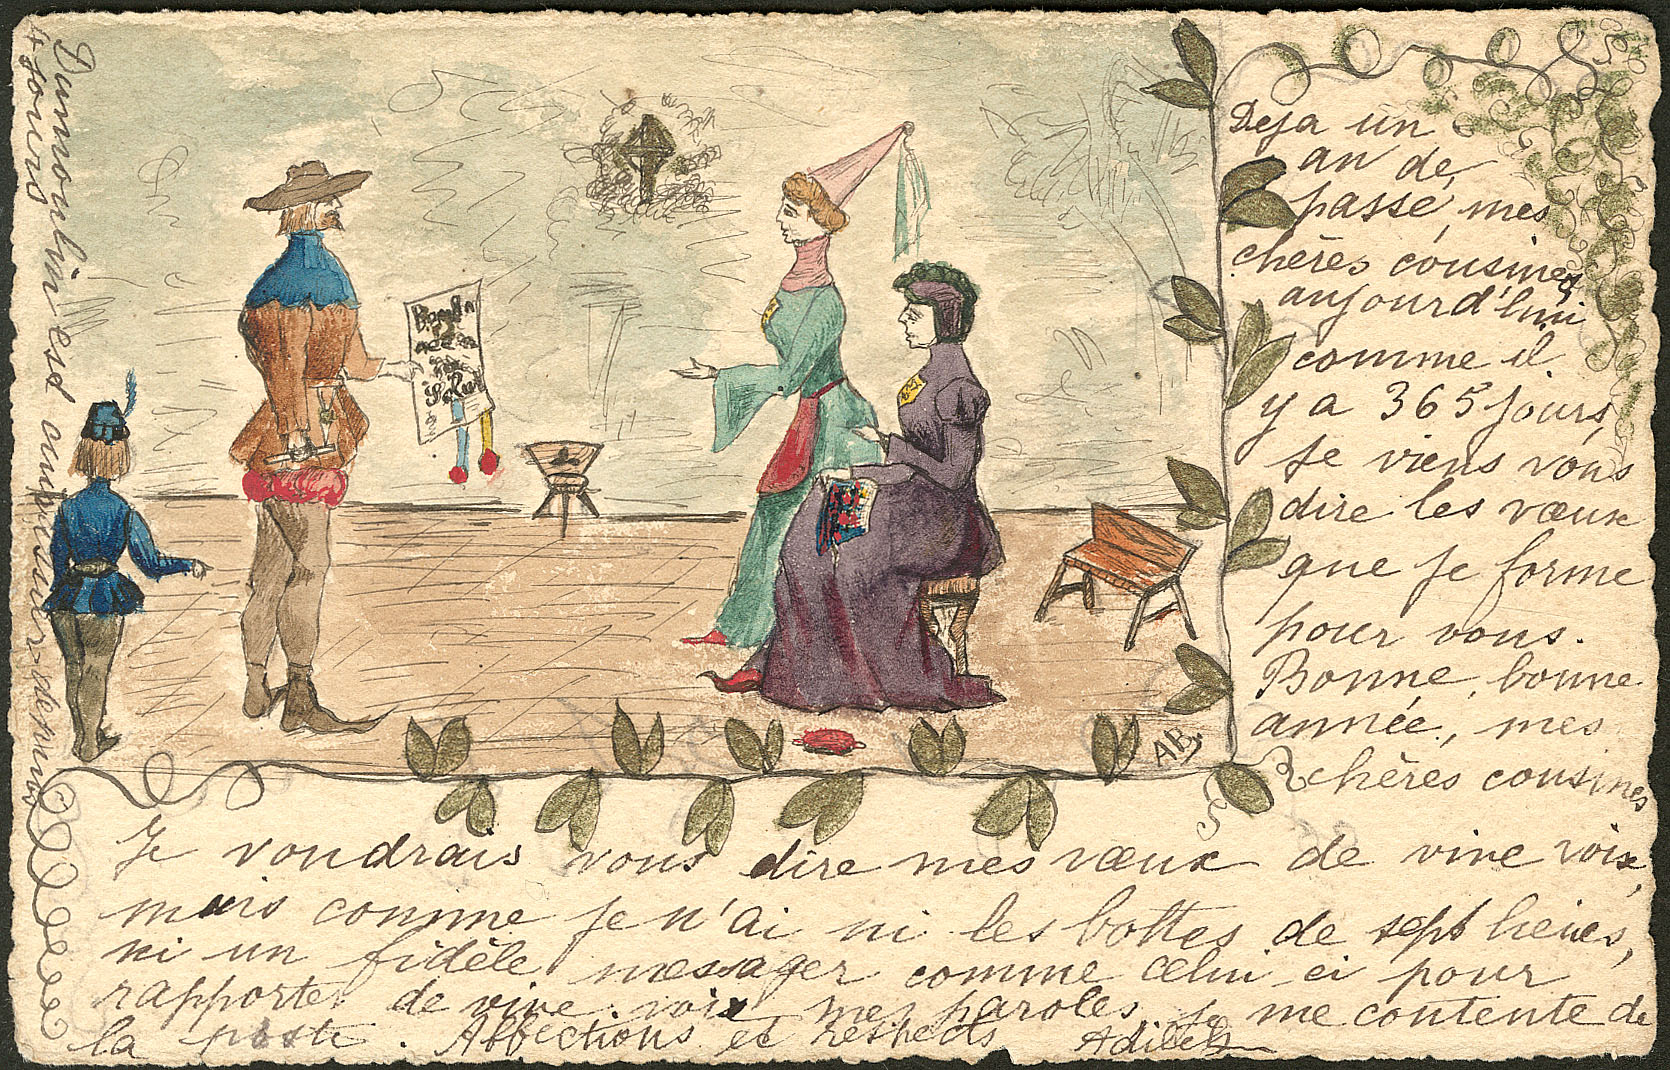 Deja un
an de
passé, mes
chères cousines
aujourd'hui
comme il
y a 365 jours,
je viens vous
dire les vœux
que je forme
pour vous.
Bonne, bonne
année, mes
chères cousines
Je voudrais vous dire mes vœux de vive voix,
mais comme je n'ai ni les bottes de sept lieues,
ni un fidèle messager comme celui-ci pour
rapporter de vive voix mes paroles je me contente de
la poste. Affections et respects
AB
Dumoulin est
4 jours